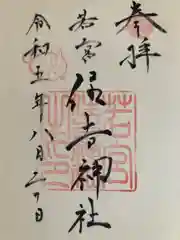 奉拝
若宮
住吉神社
令和五年八月二十日
若宮